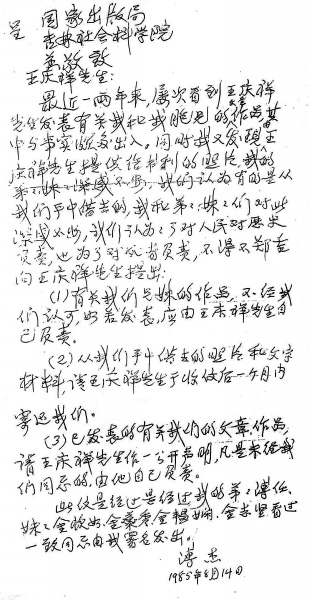 呈 国家出版局
吉林社会科学院
王庆祥先生:
最近一两年来,屡次看到王庆祥
先生发表有关我和我胞兄的作品,其
中与事实颇多出入。同时我又发现王
庆祥先生提供给书刊的照片,我的
弟、妹、深感不安,我们认为有的是从
我们手中借去的,我和弟、妹、们对此
深感不安,我们认为,为了对人民对历史
负责,也为了对死者负责,不得不郑重
向王庆祥先生提出:
(1)有关我们兄妹的作品,不经我
们认可,如若发表,应由王庆祥先生自
己负责。
(2)从我们手中借去的照片和文字
材料,请王庆祥先生于收信后一个月内
寄还我们。
(3)已发表的有关我们的文章、作品,
请王庆祥先生作一公开声明,凡是未经我
们同意的,由他自己负责。
此仅是经过是经过我的弟:溥任、
妹:金欣如、金蕊秀、金韫娴、金志坚看过
一致同意由我署名发出。
溥杰
1985年8月14日